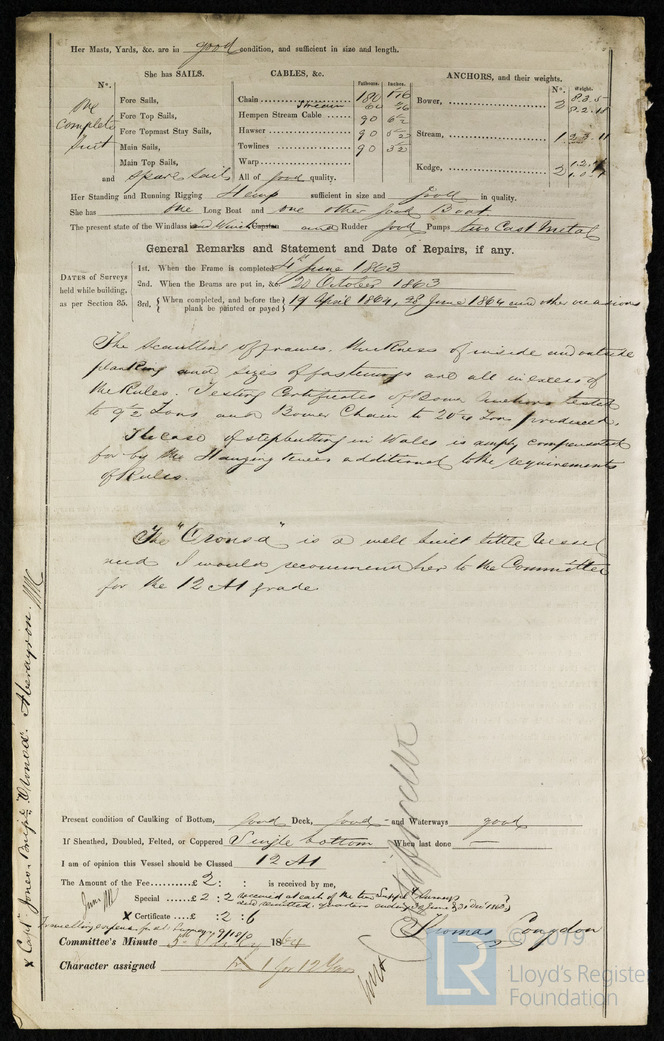 Her Masts, Yards, &c. are in good condition, and sufficient in size and length.
She has SAILS.
CABLES, &c.
Fathoms.
Inches.
ANCHORS, and their weights.
N°.
Weight.
N°.
one complete suit
Fore Sails,
Fore Top Sails,
Fore Topmast Stay Sails,
Main Sails,
Main Top Sails,
and spare sails
Chain 180 1 1/16
Stream 60
Hempen Stream Cable 90 6½
Hawser 90 5½
Towlines 90 3½
Warp
All of good quality.
Bower, 2 8.3.5
8.2.11
Stream, 1 2.3.11
Kedge, 2
Her Standing and Running Rigging Hemp sufficient in size and good in quality.
She has one Long Boat and one other good Boat
The present state of the Windlass and Winch Capstan and Rudder good Pumps two Cast Metal
General Remarks and Statement and Date of Repairs, if any.
DATES of Surveys
held while building,
as per Section 35.
1st. When the Frame is completed 4th June 1863
2nd. When the Beams are put in, &c. 20 October 1863
3rd, { When completed, and before the plank be painted or payed } 19 April 1864, 28 June 1864 and other occasions
The scantling of frames, thickness of inside and outside
planking and sizes of fastenings are all in excess of
the Rules. Testing Certificates of Bower Anchors tested
to 9 Tons and Bower Chain to 20 Ton produced.
The case of step butting in Wales is amply compensated
for by the Hanging knees additional to the requirements
of Rules.
The "Oronsa" is a well built little vessel
and I would recommend her to the Committee
for the 12 A1 grade
Present condition of Caulking of Bottom, good Deck, good and Waterways good
If Sheathed, Doubled, Felted, or Coppered Single bottom When last done —
I am of opinion this Vessel should be Classed 12 A1
The Amount of the Fee £2 : : is received by me,
Special £ 2 : 2
X Certificate £ : 2 : 6
Thomas Congdon
Committee's Minute 5th July 1864
Character assigned A 1 for 12 Yrs
X Capt. Jones. Brigne "Oronsa". Aberayron.
© 2019
LR
Lloyd's Register
Foundation